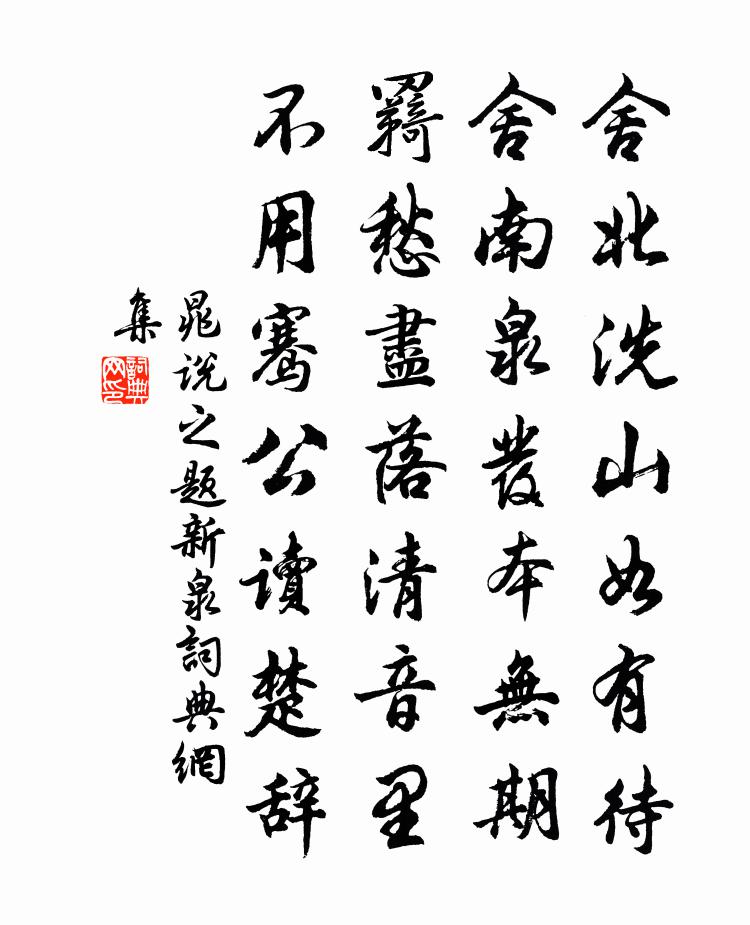 舍北洗山如有待
舍南泉發本無期
羇愁盡落清音里
不用骞公讀楚辞
晁说之题新泉詞典網
集
詞典網印